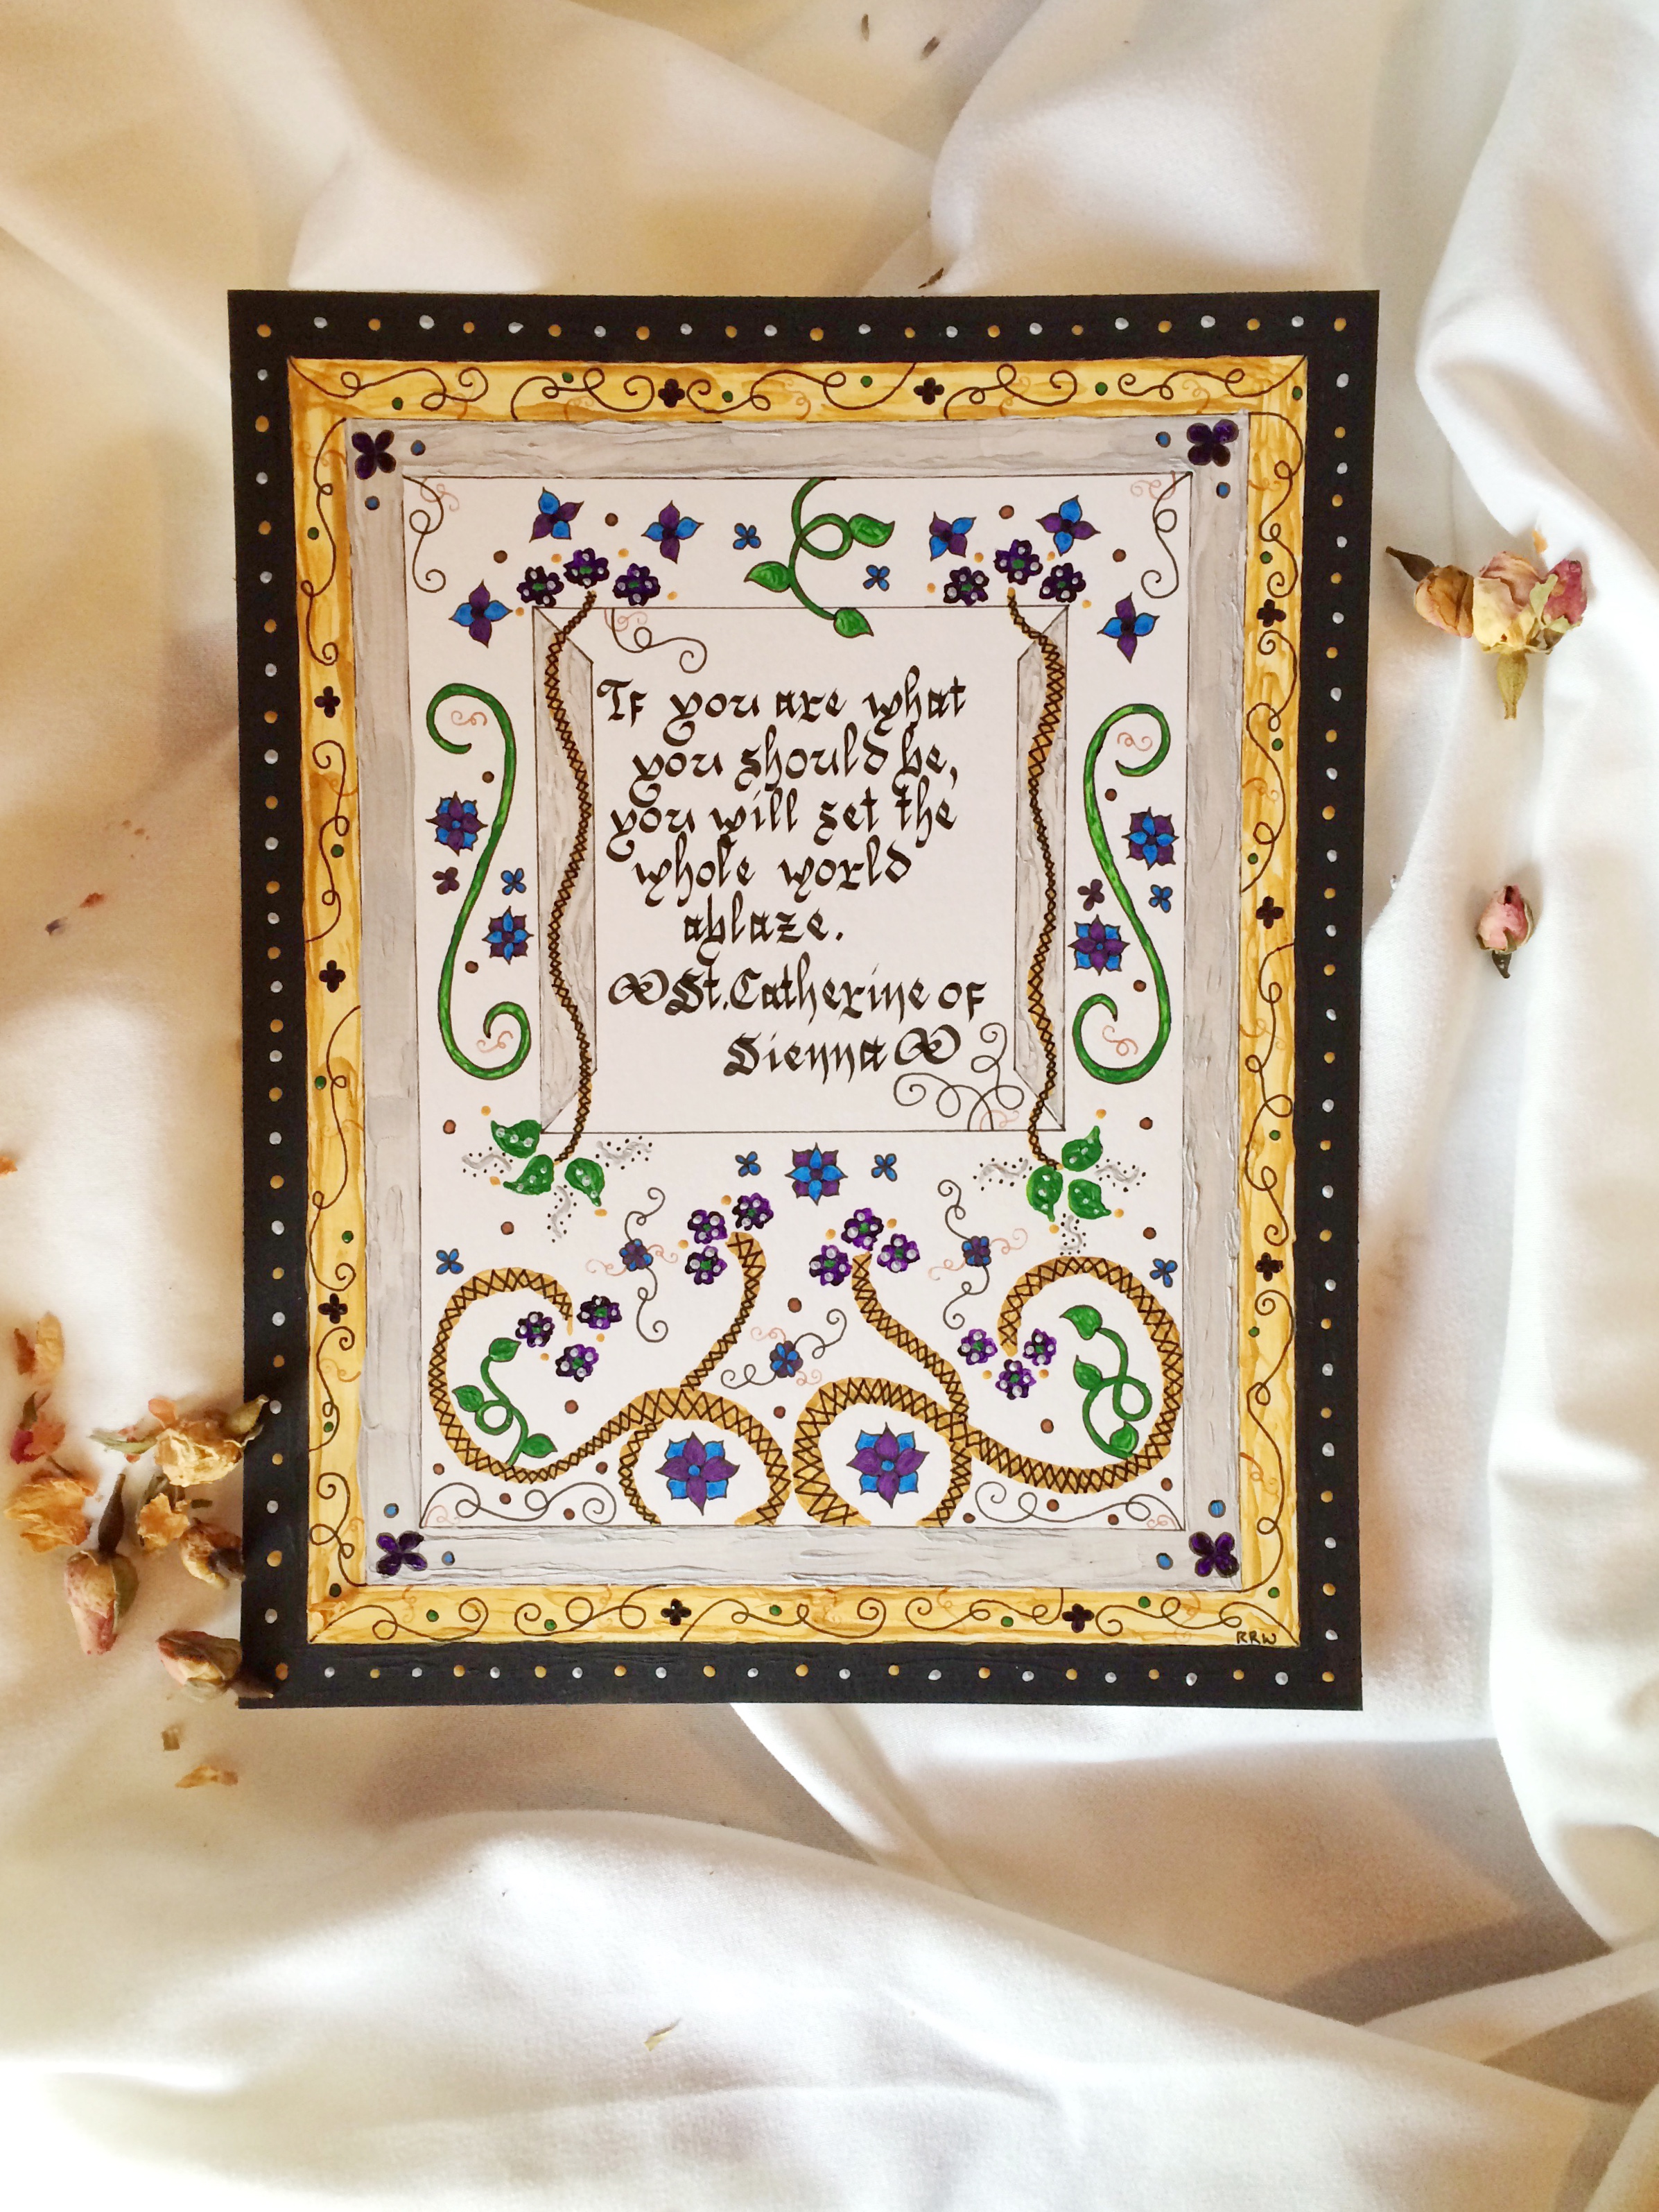 If you are what
you should be,
you will set the
whole world
ablaze.
St. Catherine of
Sienna
RRW